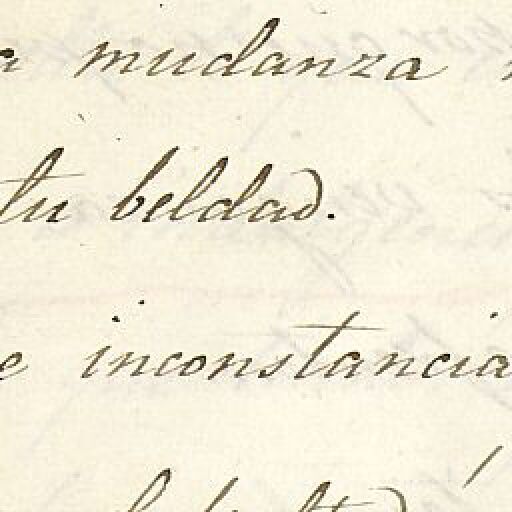 a mudanza
tu beldad.
e inconstancia